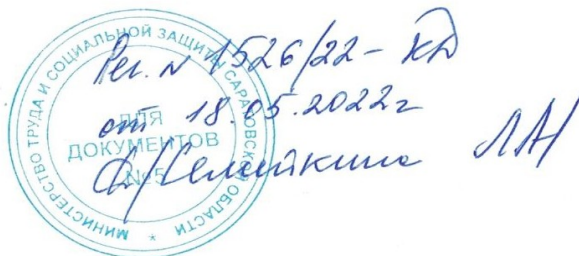 МИНИСТЕРСТВО ТРУДА И СОЦИАЛЬНОЙ ЗАЩИТЫ САРАТОВСКОЙ ОБЛАСТИ *
ДЛЯ
ДОКУМЕНТОВ
№5
Рег. № 1526/22 - КД
от 18.05.2022г